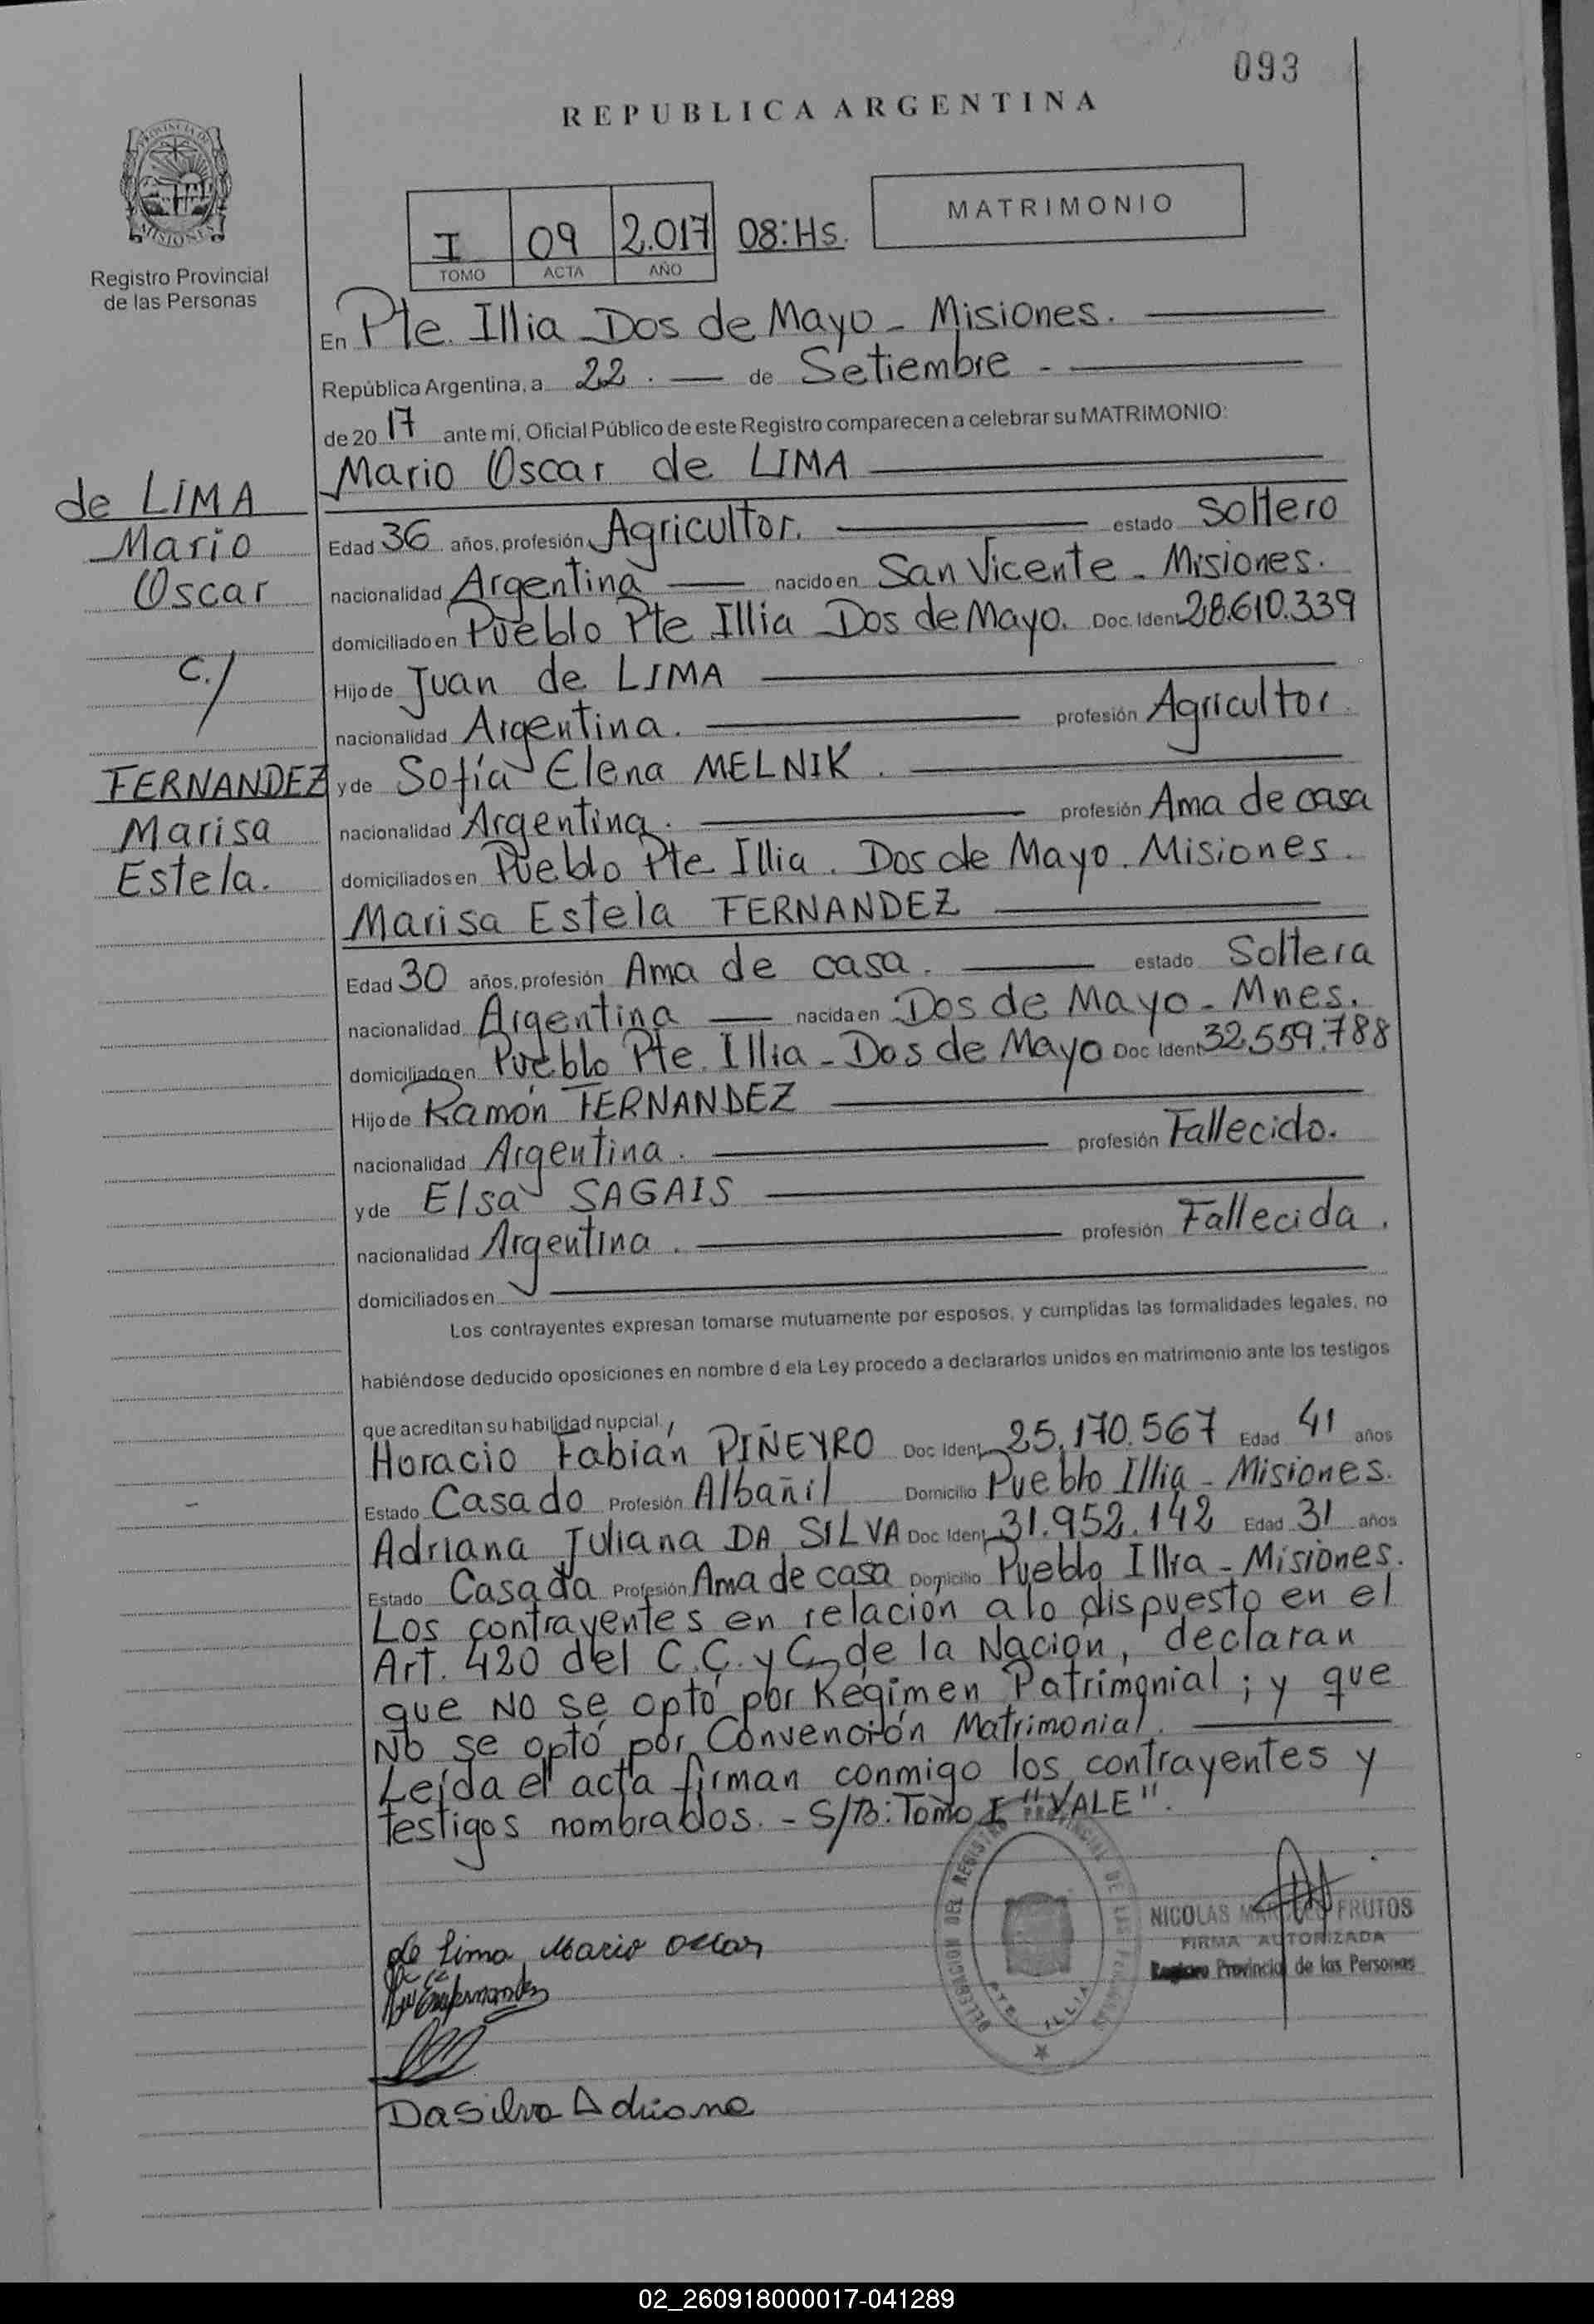 093
REPUBLICA ARGENTINA
PROVINCIA DE MISIONES
Registro Provincial
de las Personas
I 09 2.017 08:Hs. MATRIMONIO
TOMO ACTA AÑO
En Pte. Illia Dos de Mayo - Misiones.
República Argentina, a 22. de Setiembre -
de 2017 ante mi, Oficial Público de este Registro comparecen a celebrar su MATRIMONIO:
Mario Oscar de LIMA
de LIMA
Mario
Oscar
c./
FERNANDEZ
Marisa
Estela.
Edad 36 años, profesión Agricultor. estado Soltero
nacionalidad Argentina nacido en San Vicente - Misiones.
domiciliado en Pueblo Pte Illia Dos de Mayo. Doc. Ident 28.610.339
Hijo de Juan de LIMA
nacionalidad Argentina. profesión Agricultor.
y de Sofía Elena MELNIK.
nacionalidad Argentina. profesión Ama de casa
domiciliados en Pueblo Pte Illia. Dos de Mayo. Misiones.
Marisa Estela FERNANDEZ
Edad 30 años, profesión Ama de casa. estado Soltera
nacionalidad Argentina nacida en Dos de Mayo - Mnes.
domiciliado en Pueblo Pte. Illia - Dos de Mayo Doc Ident 32.559.788
Hijo de Ramón FERNANDEZ
nacionalidad Argentina. profesión Fallecido.
y de Elsa SAGAIS
nacionalidad Argentina. profesión Fallecida.
domiciliados en
Los contrayentes expresan tomarse mutuamente por esposos, y cumplidas las formalidades legales, no
habiéndose deducido oposiciones en nombre d ela Ley procedo a declararlos unidos en matrimonio ante los testigos
que acreditan su habilidad nupcial.
Horacio Fabián PIÑEYRO Doc Ident 25.170.567 Edad 41 años
Estado Casado Profesión Albañil Domicilio Pueblo Illia - Misiones.
Adriana Juliana DA SILVA Doc Ident 31.952.142 Edad 31 años
Estado Casada Profesión Ama de casa Domicilio Pueblo Illia - Misiones.
Los contrayentes en relación a lo dispuesto en el
Art. 420 del C.C. y C. de la Nación, declaran
que NO se optó por Régimen Patrimonial; y que
No se optó por Convención Matrimonial.
Leída el acta firman conmigo los contrayentes y
testigos nombrados. - S/B: Tomo I "VALE".
DELEGACION DEL REGISTRO PROVINCIAL DE LAS PERSONAS
PTE. ILLIA
NICOLAS FRUTOS
FIRMA AUTORIZADA
Registro Provincial de las Personas
de Lima Mario Oscar
Da Silva Adriana
02_260918000017-041289